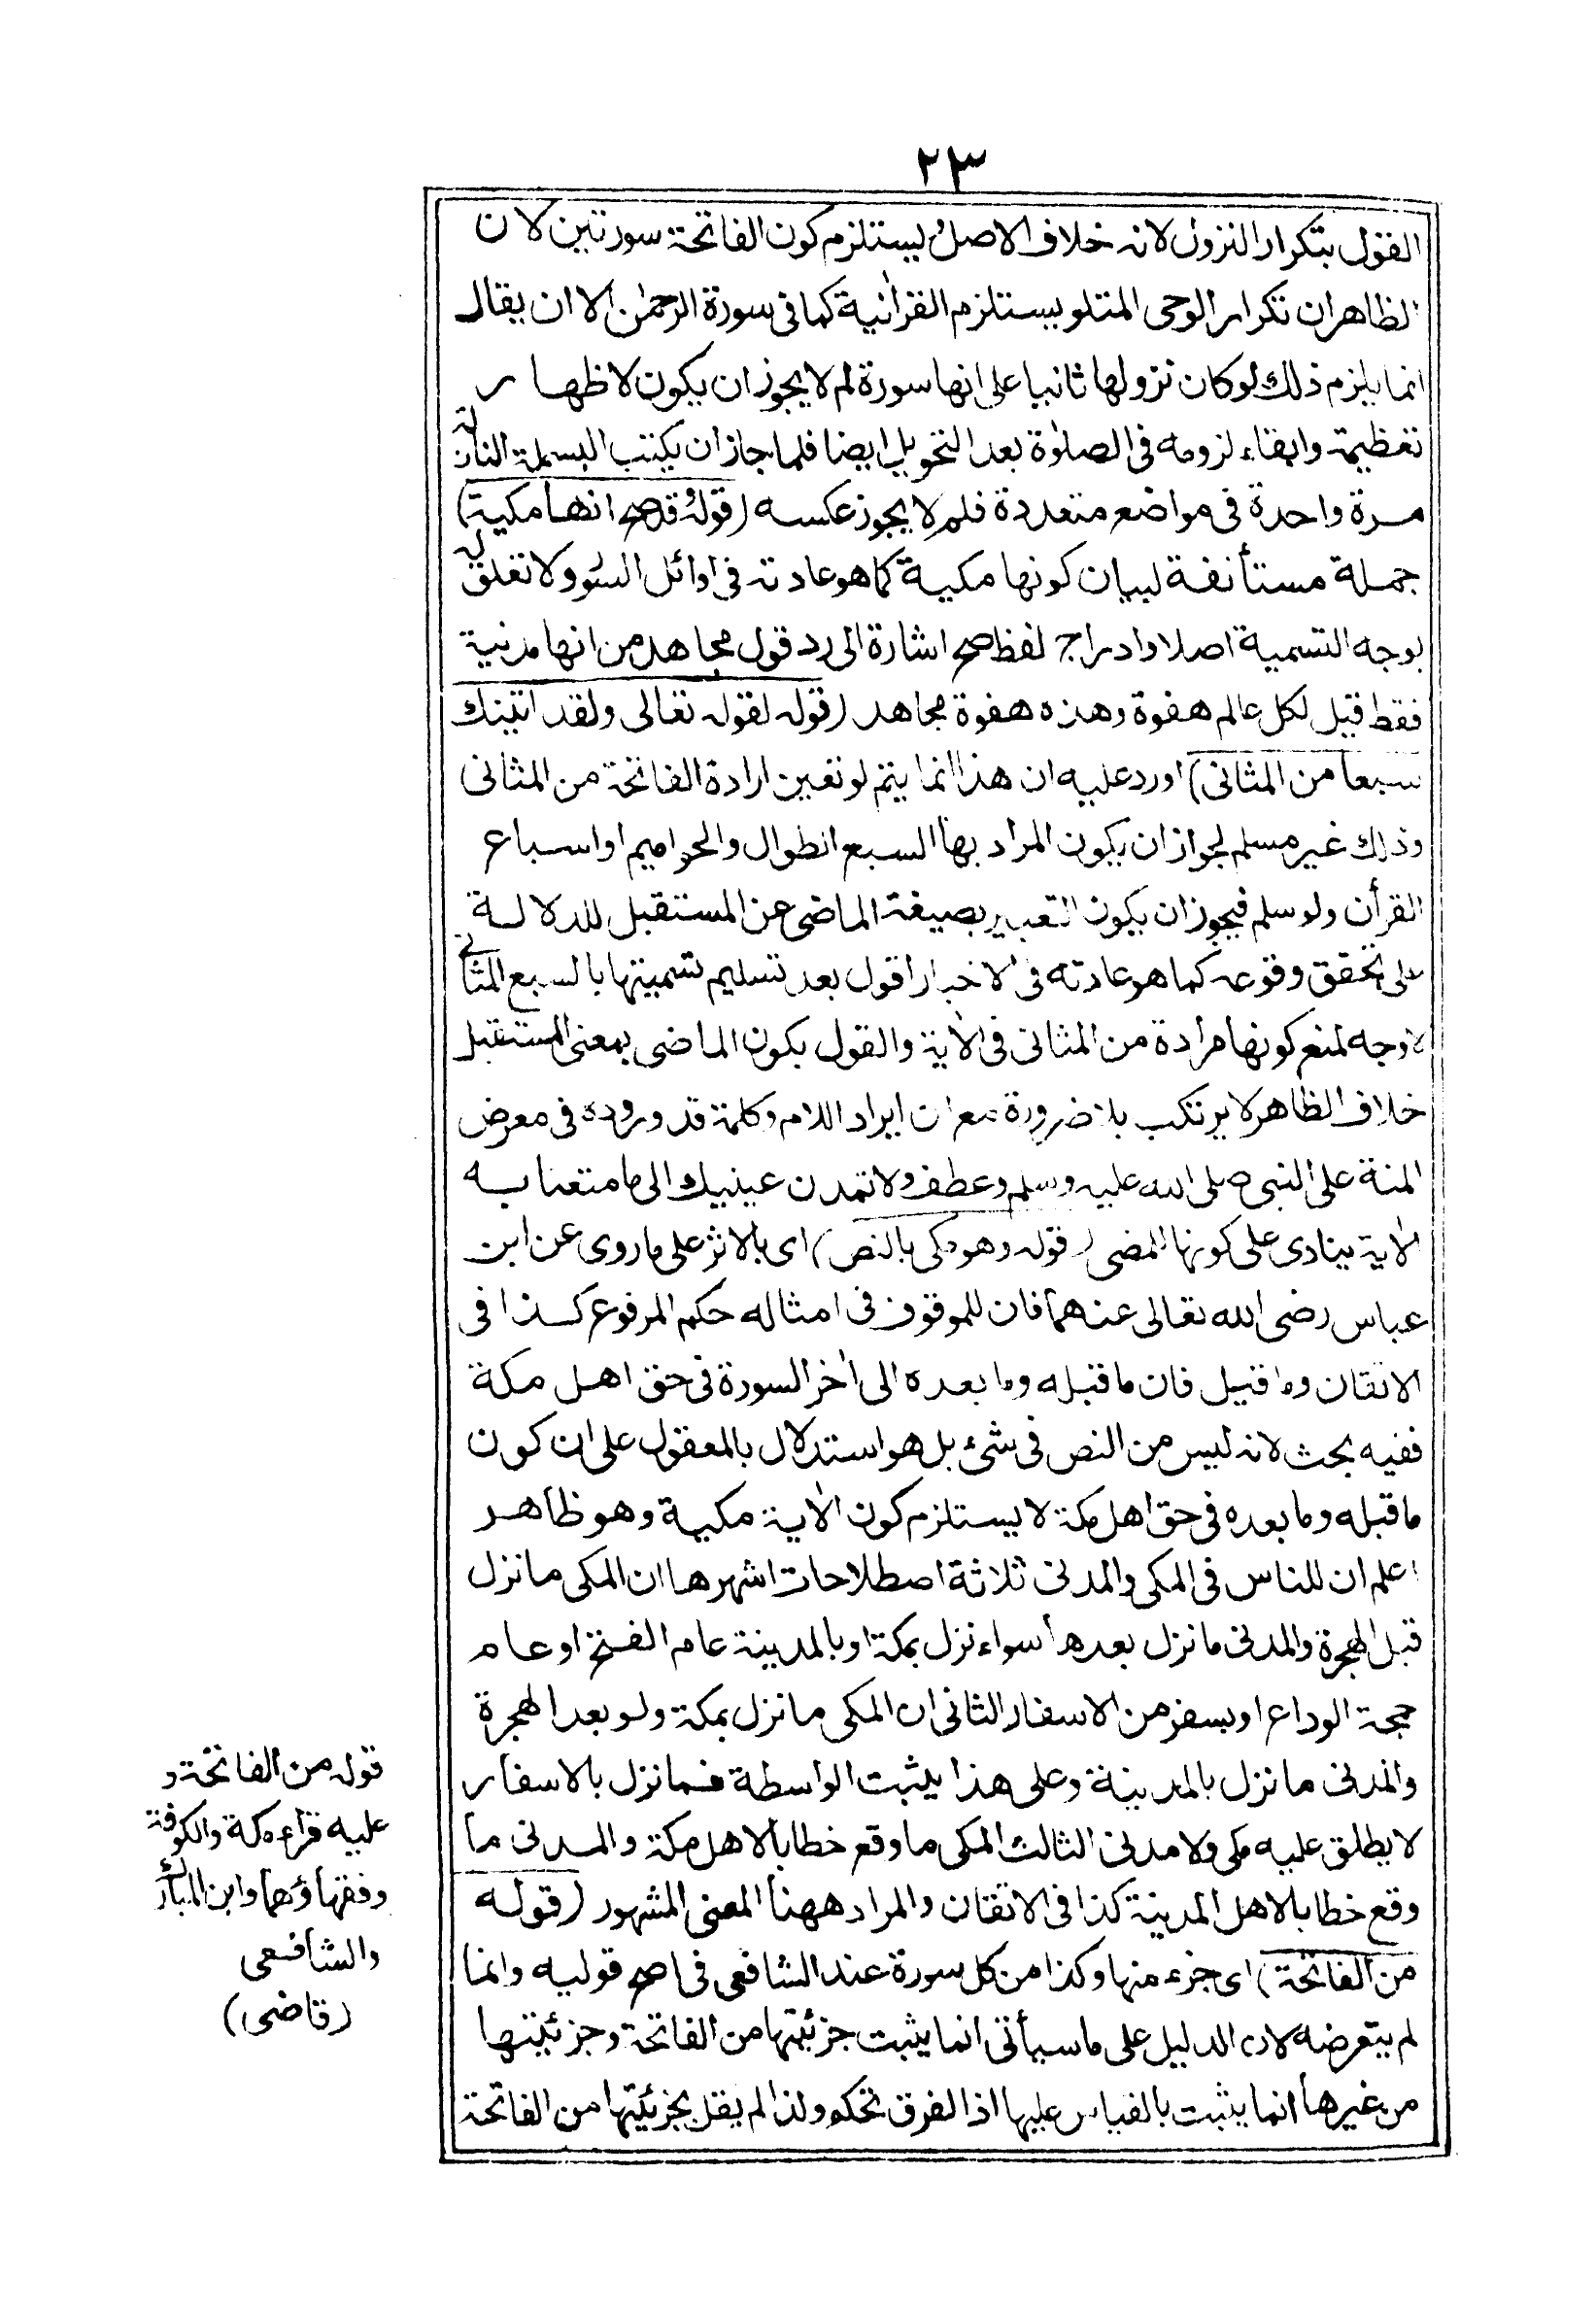 ٢٣
القول بتكرار النزول لانه خلاف الاصل ويستلزم كون الفاتحة سورتين لان
الظاهر ان تكرار الوحى المتلو يستلزم القرآنية كما فى سورة الرحمٰن الا ان يقال
انما يلزم ذلك لو كان نزولها ثانيا على انها سورة لم لا يجوز ان يكون لاظهار
تعظيمه وابقاء لزومه فى الصلوٰة بعد التحويل ايضا فلما جاز ان يكتب البسملة النازلة
مرة واحدة فى مواضع متعددة فلم لا يجوز عكسه (قوله وقد صح انها مكية)
جملة مستأنفة لبيان كونها مكية كما هو عادته فى اوائل السور ولا تعلق له
بوجه التسمية اصلا وادراج لفظ صح اشارة الى رد قول مجاهد من انها مدنية
فقط قيل لكل عالم هفوة وهذه هفوة مجاهد (قوله لقوله تعالى ولقد اتينك
سبعا من المثانى) اورد عليه ان هذا انما يتم لو تعين ارادة الفاتحة من المثانى
وذلك غير مسلم لجواز ان يكون المراد بها السبع الطوال والحواميم او اسباع
القرأن ولو سلم فيجوز ان يكون التعبير بصيغة الماضى عن المستقبل للدلالة
على تحقق وقوعه كما هو عادته فى الاخبار اقول بعد تسليم تسميتها بالسبع المثانى
لا وجه لمنع كونها مرادة من المثانى فى الاٰية والقول بكون الماضى بمعنى المستقبل
خلاف الظاهر لا يرتكب بلا ضرورة مع ان ايراد اللام وكلمة قد وروده فى معرض
المنة على النبى صلى الله عليه وسلم وعطف ولا تمدن عينيك الى ما متعنا به
الاٰية ينادى على كونها للمضى (قوله وهو مكى بالنص) اى بالاثر على ما روى عن ابن
عباس رضى الله تعالى عنهما فان للموقوف فى امثاله حكم المرفوع كذا فى
الاتقان وما قيل فان ما قبله وما بعده الى اٰخر السورة فى حق اهل مكة
ففيه بحث لانه ليس من النص فى شىء بل هو استدلال بالمعقول على ان كون
ما قبله وما بعده فى حق اهل مكة لا يستلزم كون الاٰية مكية وهو ظاهر
اعلم ان للناس فى المكى والمدنى ثلاثة اصطلاحات اشهرها ان المكى ما نزل
قبل الهجرة والمدنى ما نزل بعدها سواء نزل بمكة او بالمدينة عام الفتح او عام
حجة الوداع او بسفر من الاسفار الثانى ان المكى ما نزل بمكة ولو بعد الهجرة
والمدنى ما نزل بالمدينة وعلى هذا يثبت الواسطة فما نزل بالاسفار
لا يطلق عليه مكى ولا مدنى الثالث المكى ما وقع خطابا لاهل مكة والمدنى ما
وقع خطابا لاهل المدينة كذا فى الاتقان والمراد ههنا المعنى المشهور (قوله
من الفاتحة) اى جزء منها وكذا من كل سورة عند الشافعى فى اصح قوليه وانما
لم يتعرضه لان الدليل على ما سيأتى انما يثبت جزئيتها من الفاتحة وجزئيتها
من غيرها انما يثبت بالقياس عليها اذ الفرق تحكم ولذا لم يقل بجزئيتها من الفاتحة
قوله من الفاتحة و
عليه قراء مكة والكوفة
وفقهاؤهما وابن المبارك
والشافعى
(قاضى)